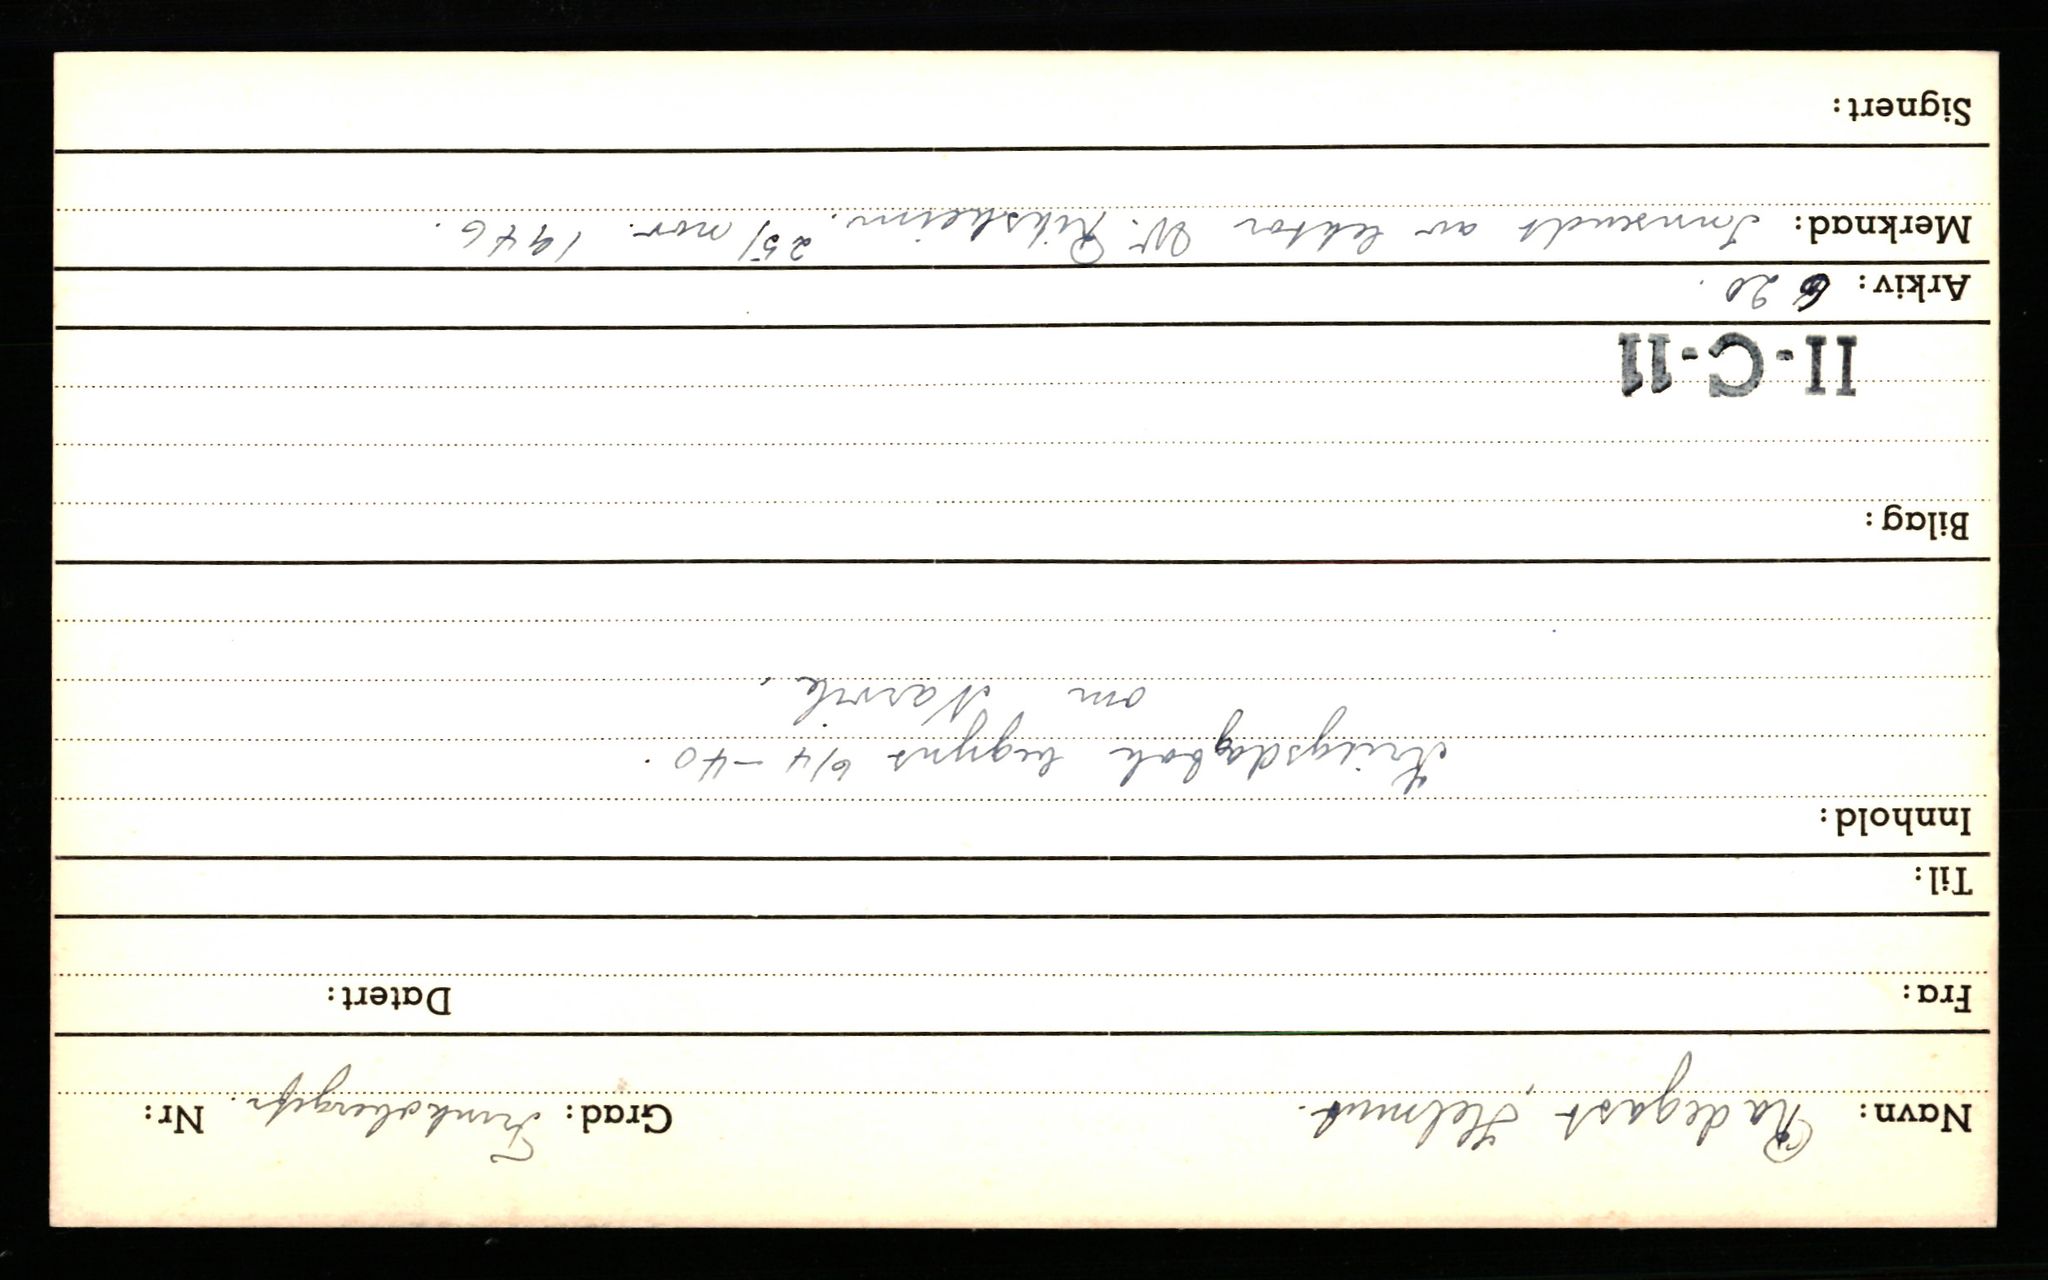 Navn: Radegast, Helmut. Grad: Funkobergefr. Nr:
Fra: Datert:
Til:
Innhold:
Kriegsdagbok begynt 6/4 - 40.
om Narvik.
Bilag:
II-C-11
Arkiv: 6 20.
Merknad: Innsendt av lektor W. Riksheim. 25/ nov. 1946.
Signert: